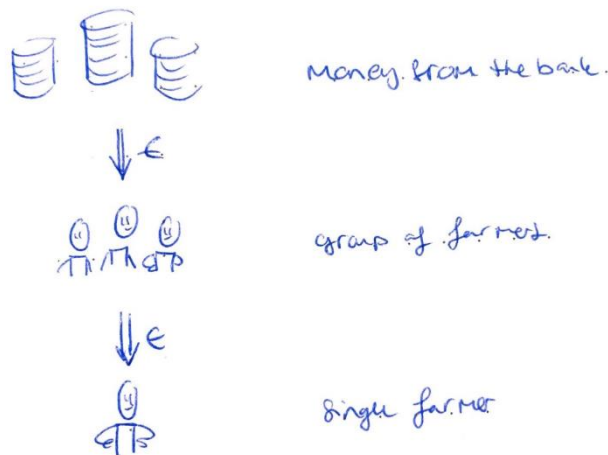 Money from the bank.
€
group of farmers.
€
single farmer